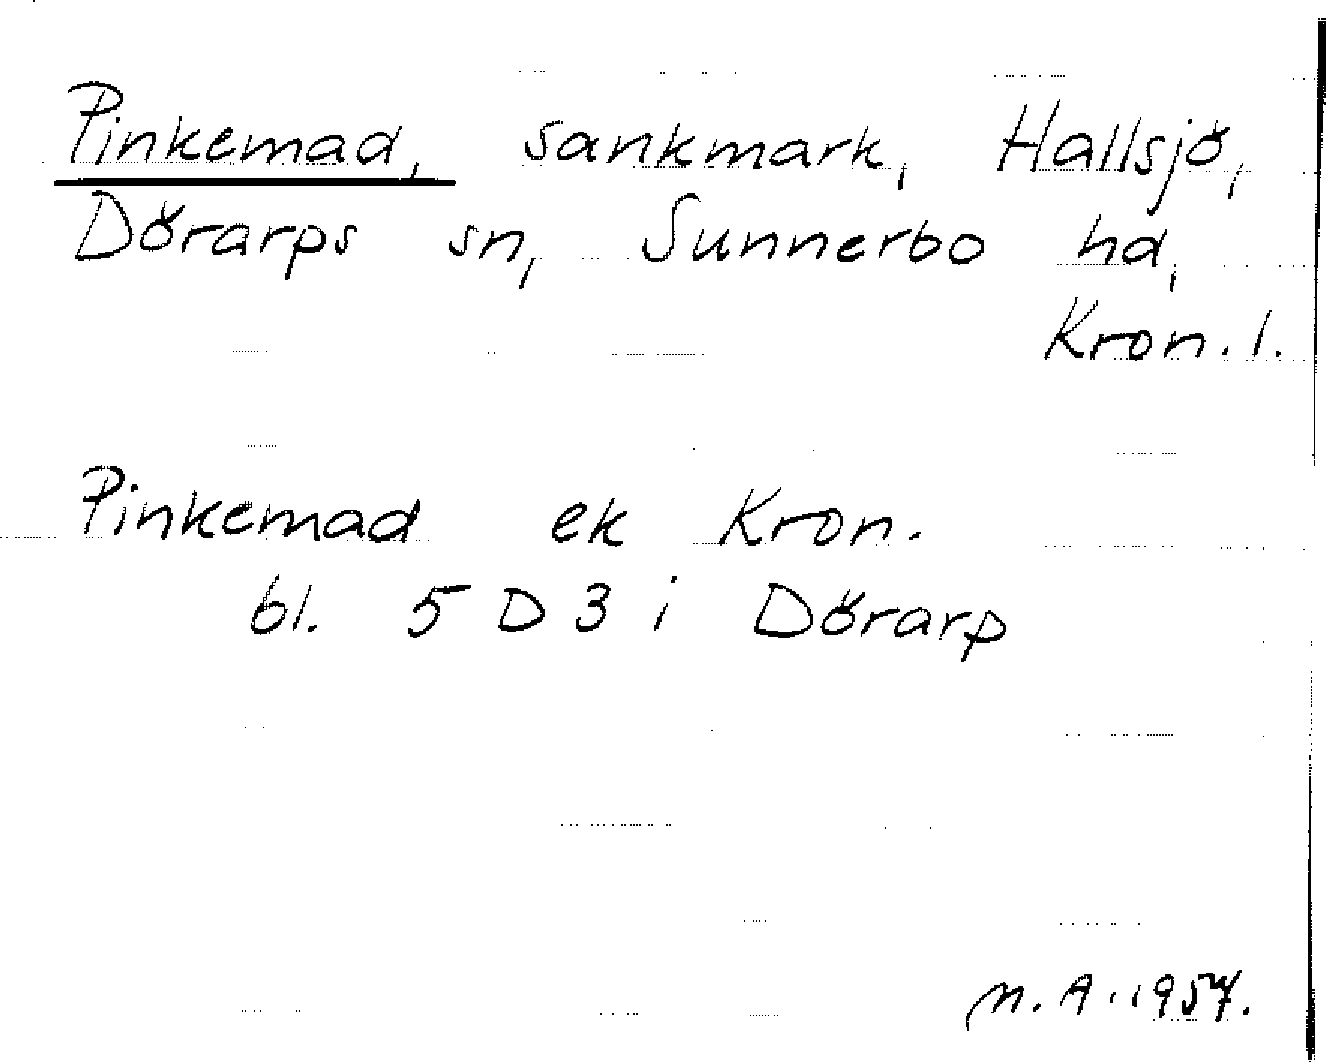 Pinkemad, sankmark, Hallsjö,
Dörarps sn, Sunnerbo hd,
Kron. l.
Pinkemad ek Kron.
bl. 5 D 3 i Dörarp
M. A. 1957.